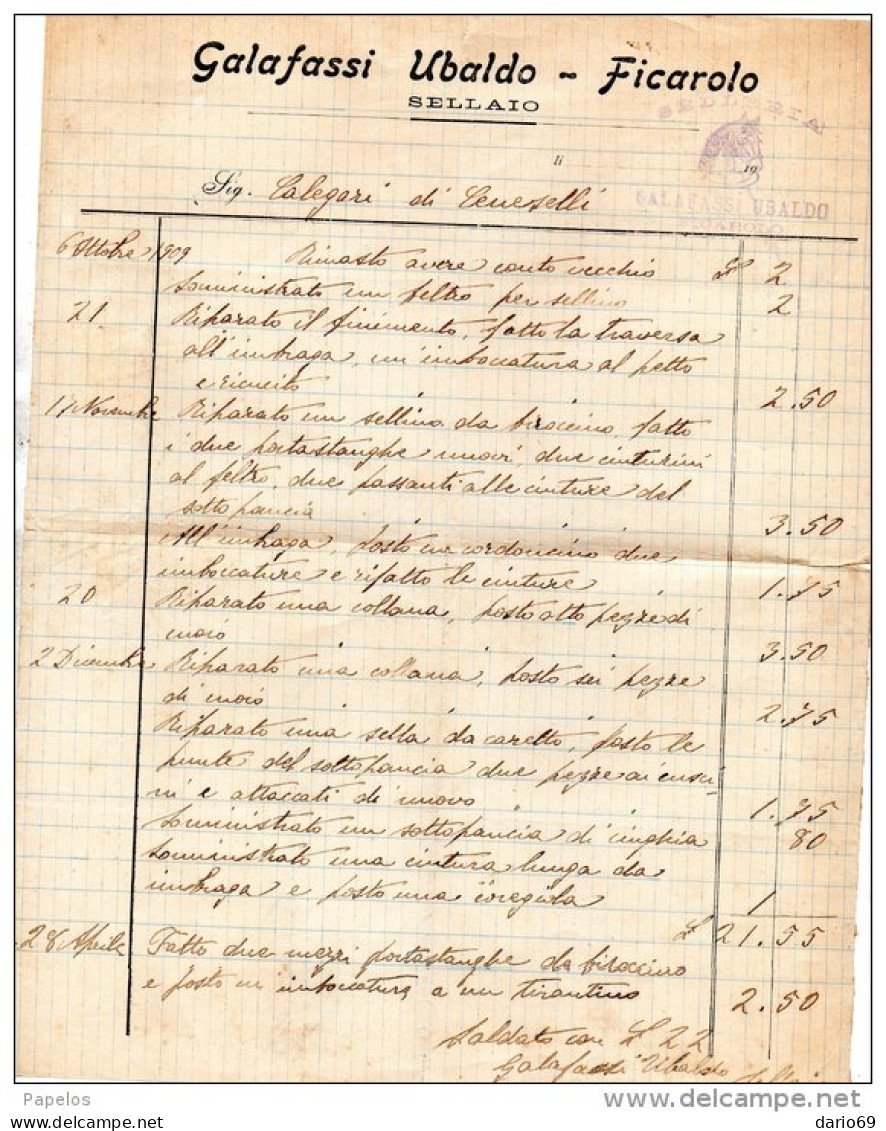 Galafassi Ubaldo - Ficarolo
SELLAIO
SELLERIA
li 19
GALAFASSI UBALDO
FICAROLO
Sig. Calegari di Ceneselli
6 Ottobre 1909 Rimasto avere conto vecchio £ 2
Somministrato un feltro per sellino 2
21 Riparato il finimento, fatto la traversa
all'imbraga, un'imboccatura al petto
e ricucito 2.50
17 Novembre Riparato un sellino da biroccino fatto
i due portastanghe nuovi, due cinturini
al feltro, due passanti alle cinture del
sottopancia 3.50
All'imbraga, posto un cordoncino due
imboccature e rifatto le cinture 1.75
20 Riparato una collana, posto otto pezze di
moio 3.50
2 Dicembre Riparato una collana, posto sei pezze
di moio 2.75
Riparato una sella da caretto, posto le
punte del sottopancia due pezze ai cusci-
ni e attaccati di nuovo 1.75
Somministrato un sottopancia di cinghia 80
Somministrato una cintura lunga da
imbraga e posto una coregiola 1
£ 21.55
28 Aprile Fatto due mezzi portastanghe da biroccino
e posto un imboccatura a un tirantino 2.50
Saldato con £ 22
Galafassi Ubaldo
Papelos
dario69
me.delcampe.net